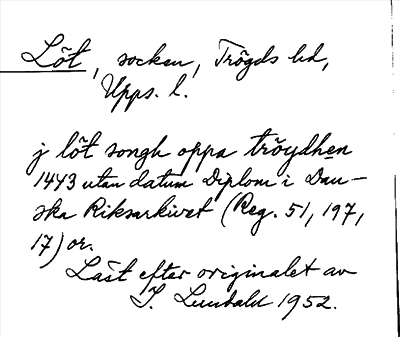 Löt, socken, Trögds hd,
Upps. l.
j löt songh oppa tröydhen
1443 utan datum Diplom i Dan-
ska Riksarkivet (Reg. 51, 197,
17) or.
Läst efter originalet av
S. Lundahl 1952.